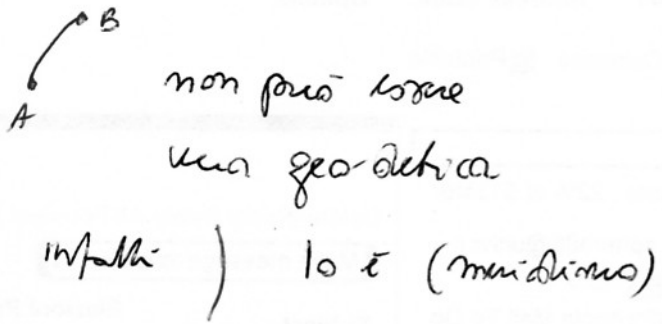 B
A
non può essere
una geodetica
infatti ) lo è (meridiano)